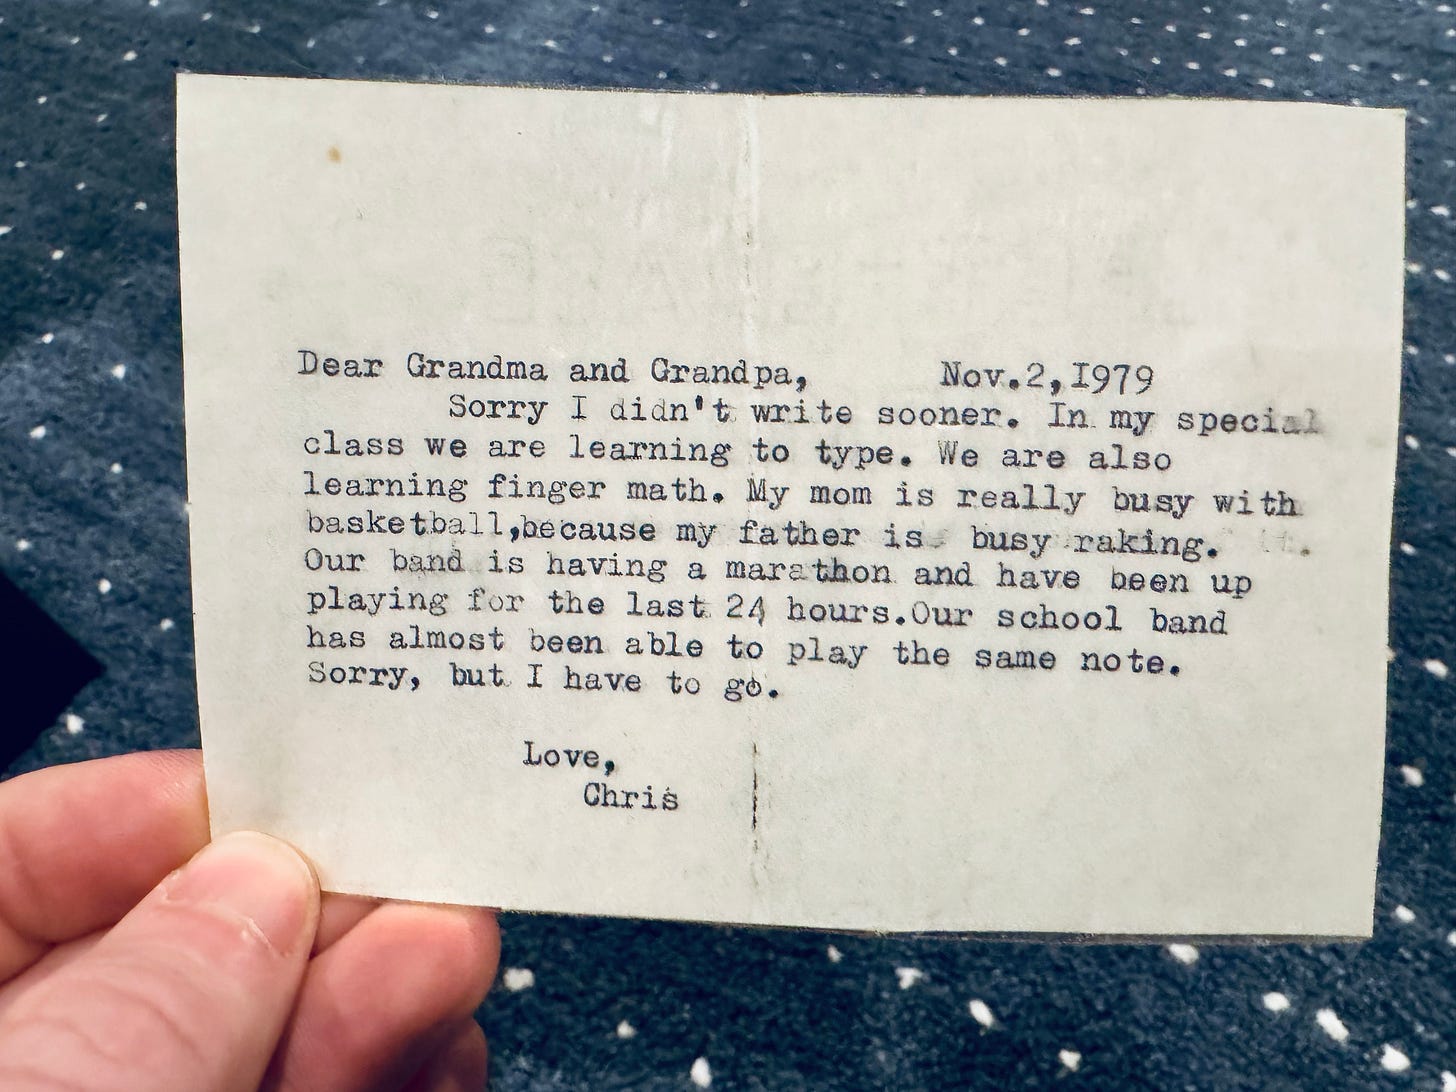 Dear Grandma and Grandpa, Nov.2,I979
Sorry I didn't write sooner. In my special
class we are learning to type. We are also
learning finger math. My mom is really busy with
basketball,because my father is busy raking.
Our band is having a marathon and have been up
playing for the last 24 hours.Our school band
has almost been able to play the same note.
Sorry, but I have to go.
Love,
Chris